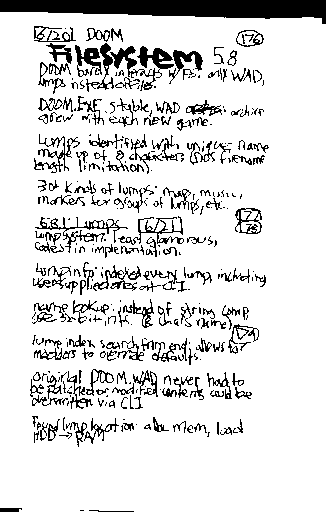 6/20 DOOM 176
Filesystem 5.8
DOOM barely interacts w/ FS: only WAD,
lumps instead of files.
DOOM.EXE stable, WAD archive
grew with each new game.
Lumps identified with unique name
made up of 8 characters (DOS filename
length limitation).
3 of kinds of lumps: map, music,
markers for groups of lumps, etc.
5.8.1 Lumps 6/21 177
lump system: least glamorous, 178
codest in implementation.
lumpinfo indexed every lump, including
user supplied ones at CLI.
name lookup: instead of string comp,
use 32 bit ints. (8 chars name) 179
lump index search from end: allows for
modders to override defaults.
original DOOM.WAD never had to
be patched or modified contents could be
overwritten via CLI
Found lump location: alloc mem, load
HDD → RAM